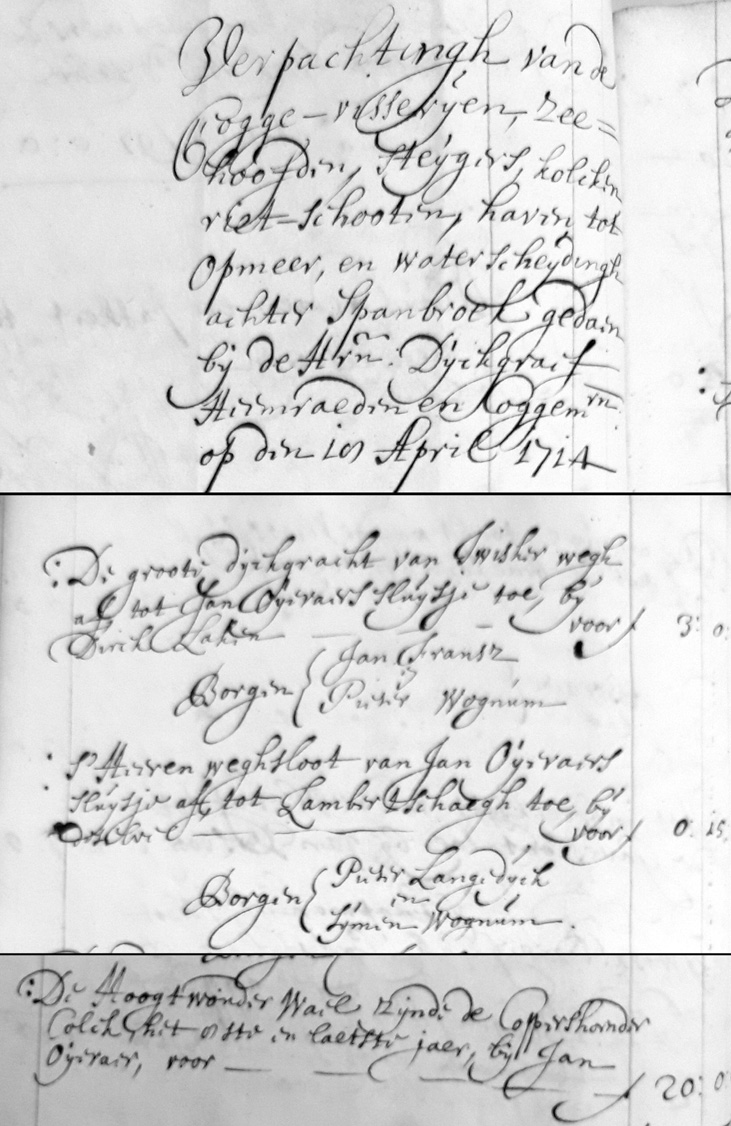 Verpachtingh van de
Cogge-visserÿen, Zee=
hoofden, steÿgers, kolcken
riet=schooten, haven tot
Opmeer, en waterscheÿdingh
achter Spanbroek gedaen
bÿ de Hrn. Dÿckgraef
Heemraeden en Coggemrn.
op den 101 April 1714
: De groote dÿckgracht van Twisker wegh
af, tot Jan Oÿevaers sluÿsje toe, bÿ
Dirck Laken voor f 3: 0:
Borgen { Jan Fransz
Pieter Wognum
: s'Heeren weghsloot van Jan Oÿevaers
sluÿsje af, tot Lambertschaegh toe, bÿ
deselve voor f 0: 15:
Borgen { Pieter Langedÿck
en
Sÿmen Wognum.
: De Hoogtwouder Wael zÿnde de Coppershorner
Colck, het 8ste en laetste jaer, bÿ Jan
Oÿevaer, voor f 20: 0: